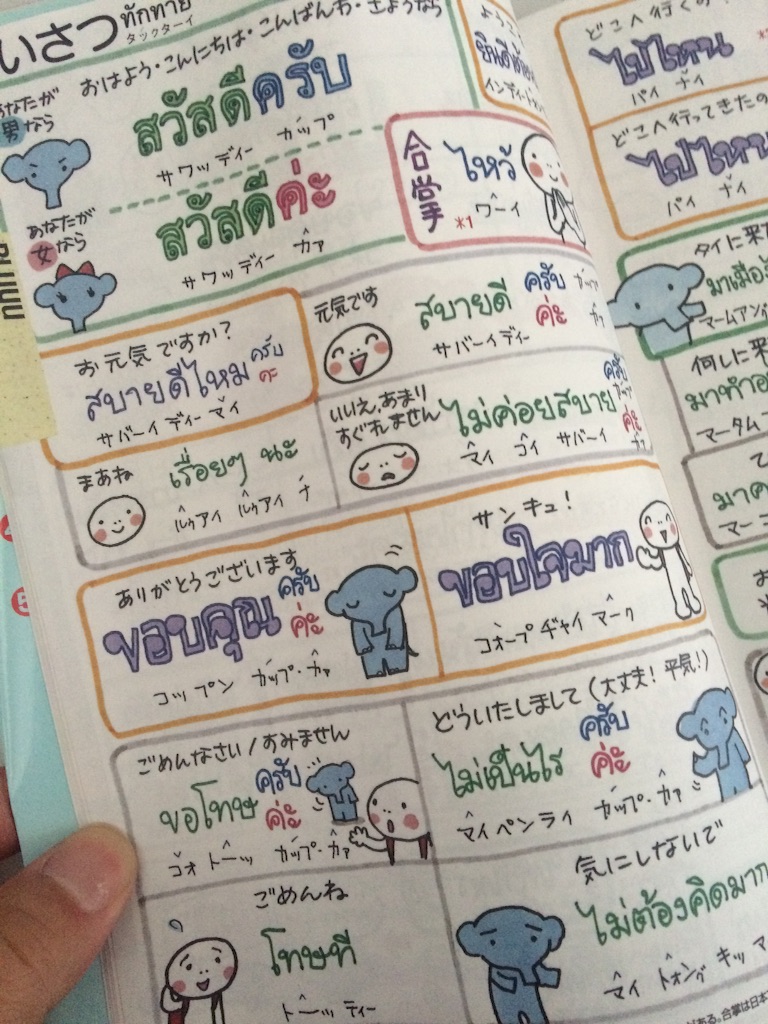 いさつ ทักทาย
タックターイ
おはよう・こんにちは・こんばんわ・さようなら
あなたが
男なら
สวัสดีครับ
サワッディー カップ
あなたが
女なら
สวัสดีค่ะ
サワッディー カァ
合掌
ไหว้
*1 ワーイ
お元気ですか?
สบายดีไหม ครับ
คะ
サバーイ ディー マイ
元気です
สบายดี ครับ
ค่ะ
サバーイ ディー
まあね
เรื่อยๆ นะ
ルゥアイ ルゥアイ ナ
いいえ、あまり
すぐれません
ไม่ค่อยสบาย ครับ
ค่ะ
マイ コイ サバーイ
ありがとうございます
ขอบคุณ ครับ
ค่ะ
コップン カップ・カァ
サンキュ!
ขอบใจมาก
コオープ ヂャイ マーク
ごめんなさい/すみません
ขอโทษ ครับ
ค่ะ
コォ トーッ カップ・カァ
どういたしまして(大丈夫!平気!)
ไม่เป็นไร ครับ
ค่ะ
マイ ペンライ カップ・カァ
ごめんね
โทษที
トーッ ティー
気にしないで
ไม่ต้องคิดมาก
マイ トォング キッ マ
どこへ行くの
ไปไหน
パイ ナイ
どこへ行ってきたの
ไปไหน
パイ ナイ
タイに来た
มาเมือง
マームアン
何しに来
มาทำอ
マータム
มาค
マー
がある。合掌は日本